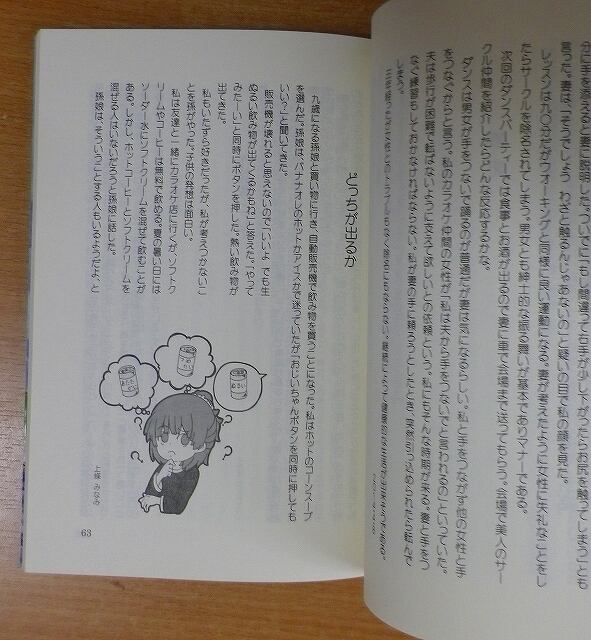 分に手を添えると妻に説明したついでに「もし間違っても手が少し下がったらお尻を触ってしまうことも
言った。妻は、「そうでしょう、わざと触るんじゃあないの」と疑いの目で私の顔を見た。
レッスンは九〇分だがウォーキングと同様に良い運動になる。妻が考えたように女性に失礼なことをし
たらサークルを除名されてしまう。男女とも紳士的な振る舞いが基本でありマナーである。
次回のダンスパーティーでは食事とお酒が出るので妻に車で会場まで送ってもらう。会場で美人のサー
クル仲間を紹介したらどんな反応するかな。
ダンスは男女が手をつないで踊るのが普通だが妻は気になるらしい。私と手をつながず他の女性と手
をつなぐからと言う。私のカラオケ仲間の女性が「私は夫から手をつないでと言われるの」といっていた。
夫は歩行が困難で転ばないように支えて欲しいとの依頼という。私にもそんな時期が来る。妻と手をつ
なぐ練習もしておかなければならない。私が妻の手に頼ろうとしたとき、突然引っ込められたら転んで
しまう。
どっちが出るか
九歳になる孫娘と買い物に行き、自動販売機で飲み物を買うことになった。私はホットのコーンスープ
を選んだ。孫娘は、バナナオレのホットかアイスかで迷っていたが「おじいちゃんボタンを同時に押しても
いい?」と聞いてきた。
販売機が壊れると思えないので「いいよ でも生
ぬるい飲み物が出てくるかもね」と答えた。「やって
みたーい」と同時にボタンを押した。熱い飲み物が
出てきた。
私もいたずら好きだったが、私が考えつかないこ
とを孫がやった。子供の発想は面白い。
私は友達と一緒にカラオケ店に行くが、ソフトク
リームやコーヒーは無料で飲める。夏の暑い日には
ソーダー水にソフトクリームを混ぜて飲むことが
ある。しかし、ホットコーヒーとソフトクリームを
混ぜる人はいないだろうと孫娘に話した。
孫娘は、そういうことする人もいるようだよ、と
上條 みなみ
63